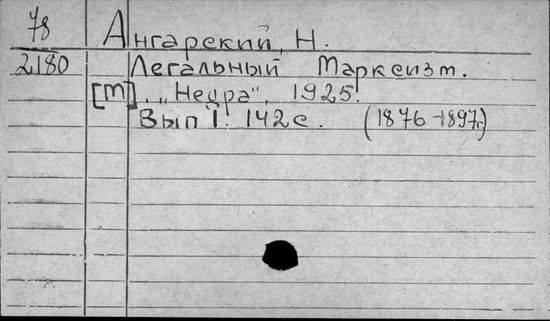 78 Ангарский, Н.
2180 Легальный Марксизм.
[м], „Недра", 1925.
Вып I. 142 с. (1876-1897г)